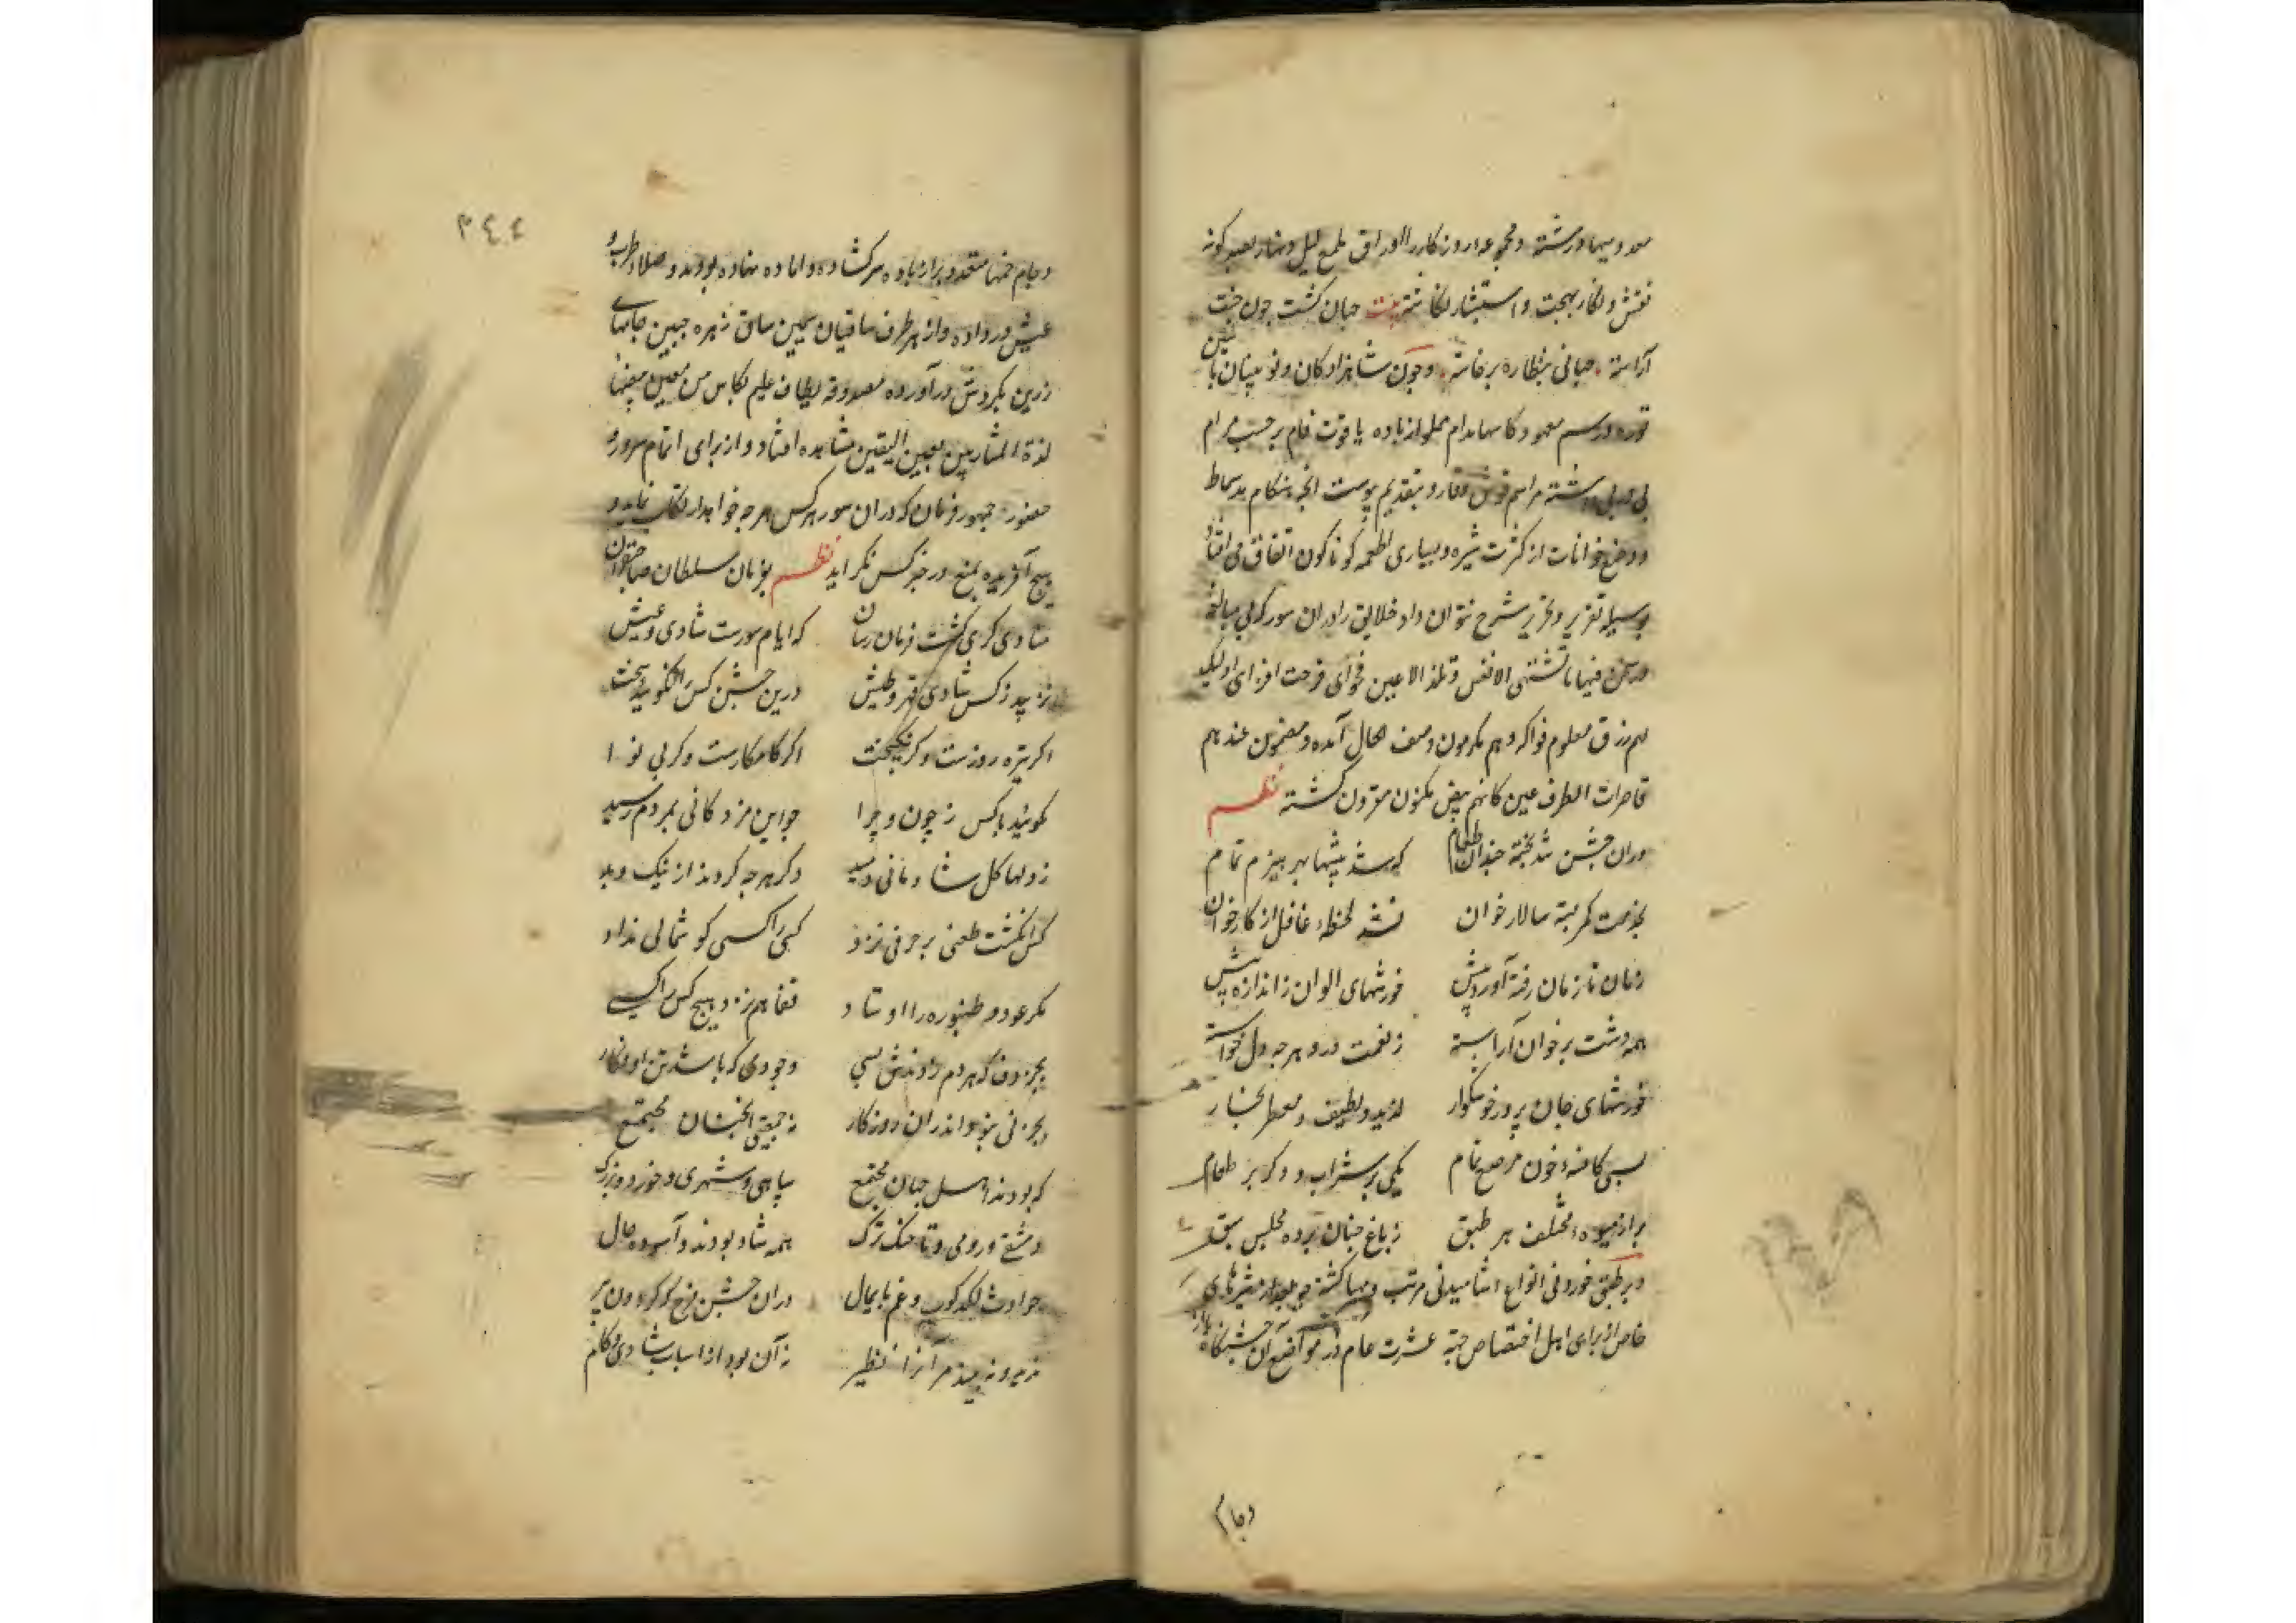 نقش و نگار بهجت و استبشار نگاشته بیت جهان گشت چون جنت
آراسته جهانی بنظاره برخاسته و چون شاهزادکان و نوینان با
توره و رسم معهود کاسها مدام مملو از باده یاقوت فام بر حسب مرام
و وضع خوانات از کثرت شیره و بسیاری اطعمه کوناکون اتفاق می افتاد
بوسیله تقریر و تحریر شرح نتوان داد خلایق را دران سور که بی مبالغه
فیها ما تشتهی الانفس و تلذ الاعین فحوای فرحت افزای اولیک
لهم رزق معلوم فواکه و هم مکرمون وصف الحال آمده و مضمون عندهم
قاصرات الطرف عین کانهن بیض مکنون مقرون کشته نظم
دران جشن شد پخته چندان طعام که شد بیشها بهر هیزم تمام
بخدمت کمر بسته سالار خوان نشد لحظه غافل از کار خوان
زمان تا زمان رفته آورد پیش خورشهای الوان ز اندازه بیش
همه دشت بر خوان آراسته ز نعمت درو هرچه دل خواسته
خورشهای جان پرور خوشکوار لذیذ و لطیف و معطر بخار
بسی کاسه و خون مرصع تمام یکی پر شراب و دکر پر طعام
پر از میوه مختلف هر طبق ز باغ جنان برده مجلس سبق
و بر طبق خوردنی انواع اشامیدنی مرتب و مهیا کشته
خاص از برای اهل اختصاص جهة عشرت عام در مواضع آن جشنکاه
و جام
٣٤٤
و جام خمها متعدد پر از باده سر کشاده و اماده نهاده بودند و صلاء طرب و
عیش در داده و از هر طرف ساقیان سیمین ساق زهره جبین جامهای
زرین بکردش درآورده مصدوقه یطاف علیهم بکاس من معین بیضا
لذة للشاربین بعین الیقین مشاهده افتاد و از برای اتمام سرور و
حضور جمهور فرمان که دران سور هر کس هرچه خواهد ارتکاب نماید و
هیچ آفریده بمنع و زجر کس نکراید نظم بفرمان سلطان صاحبقران
منادی کری کشت فرمان رسان که ایام سورست شادی و عیش
نزیبد ز کس شادی قهر و طیش درین جشن کس را نکوید سخت
اکر تیره روزست و کر نیکبخت اکر کامکارست و کر بی نوا
نکویند با کس ز چون و چرا چو این مژدکانی بمردم رسید
ز دلها کل شادمانی دمید دکر هرچه کردند از نیک و بد
کس انکشت طعنی بر حرفی نزد کسی را کسی کوشمالی نداد
مکر عود و طنبوره را اوستاد قفا هم نزد هیچ کس را کسی
بجز دف که هر دم زدندش بسی وجودی که باشد تن او فکار
بجز نی نبود اندران روزکار ز جمعیتی انچنان مجتمع
که بودند اهل جهان مجتمع سپاهی و شهری و خورد و بزرک
دمشق و رومی و تاجیک و ترک همه شاد بودند و آسوده حال
حوادث لکدکوب و غم پایمال دران جشن فرخ که کردون پیر
ندید و نه بیند مر آنرا نظیر ز آن بود از اسباب شادی و کام